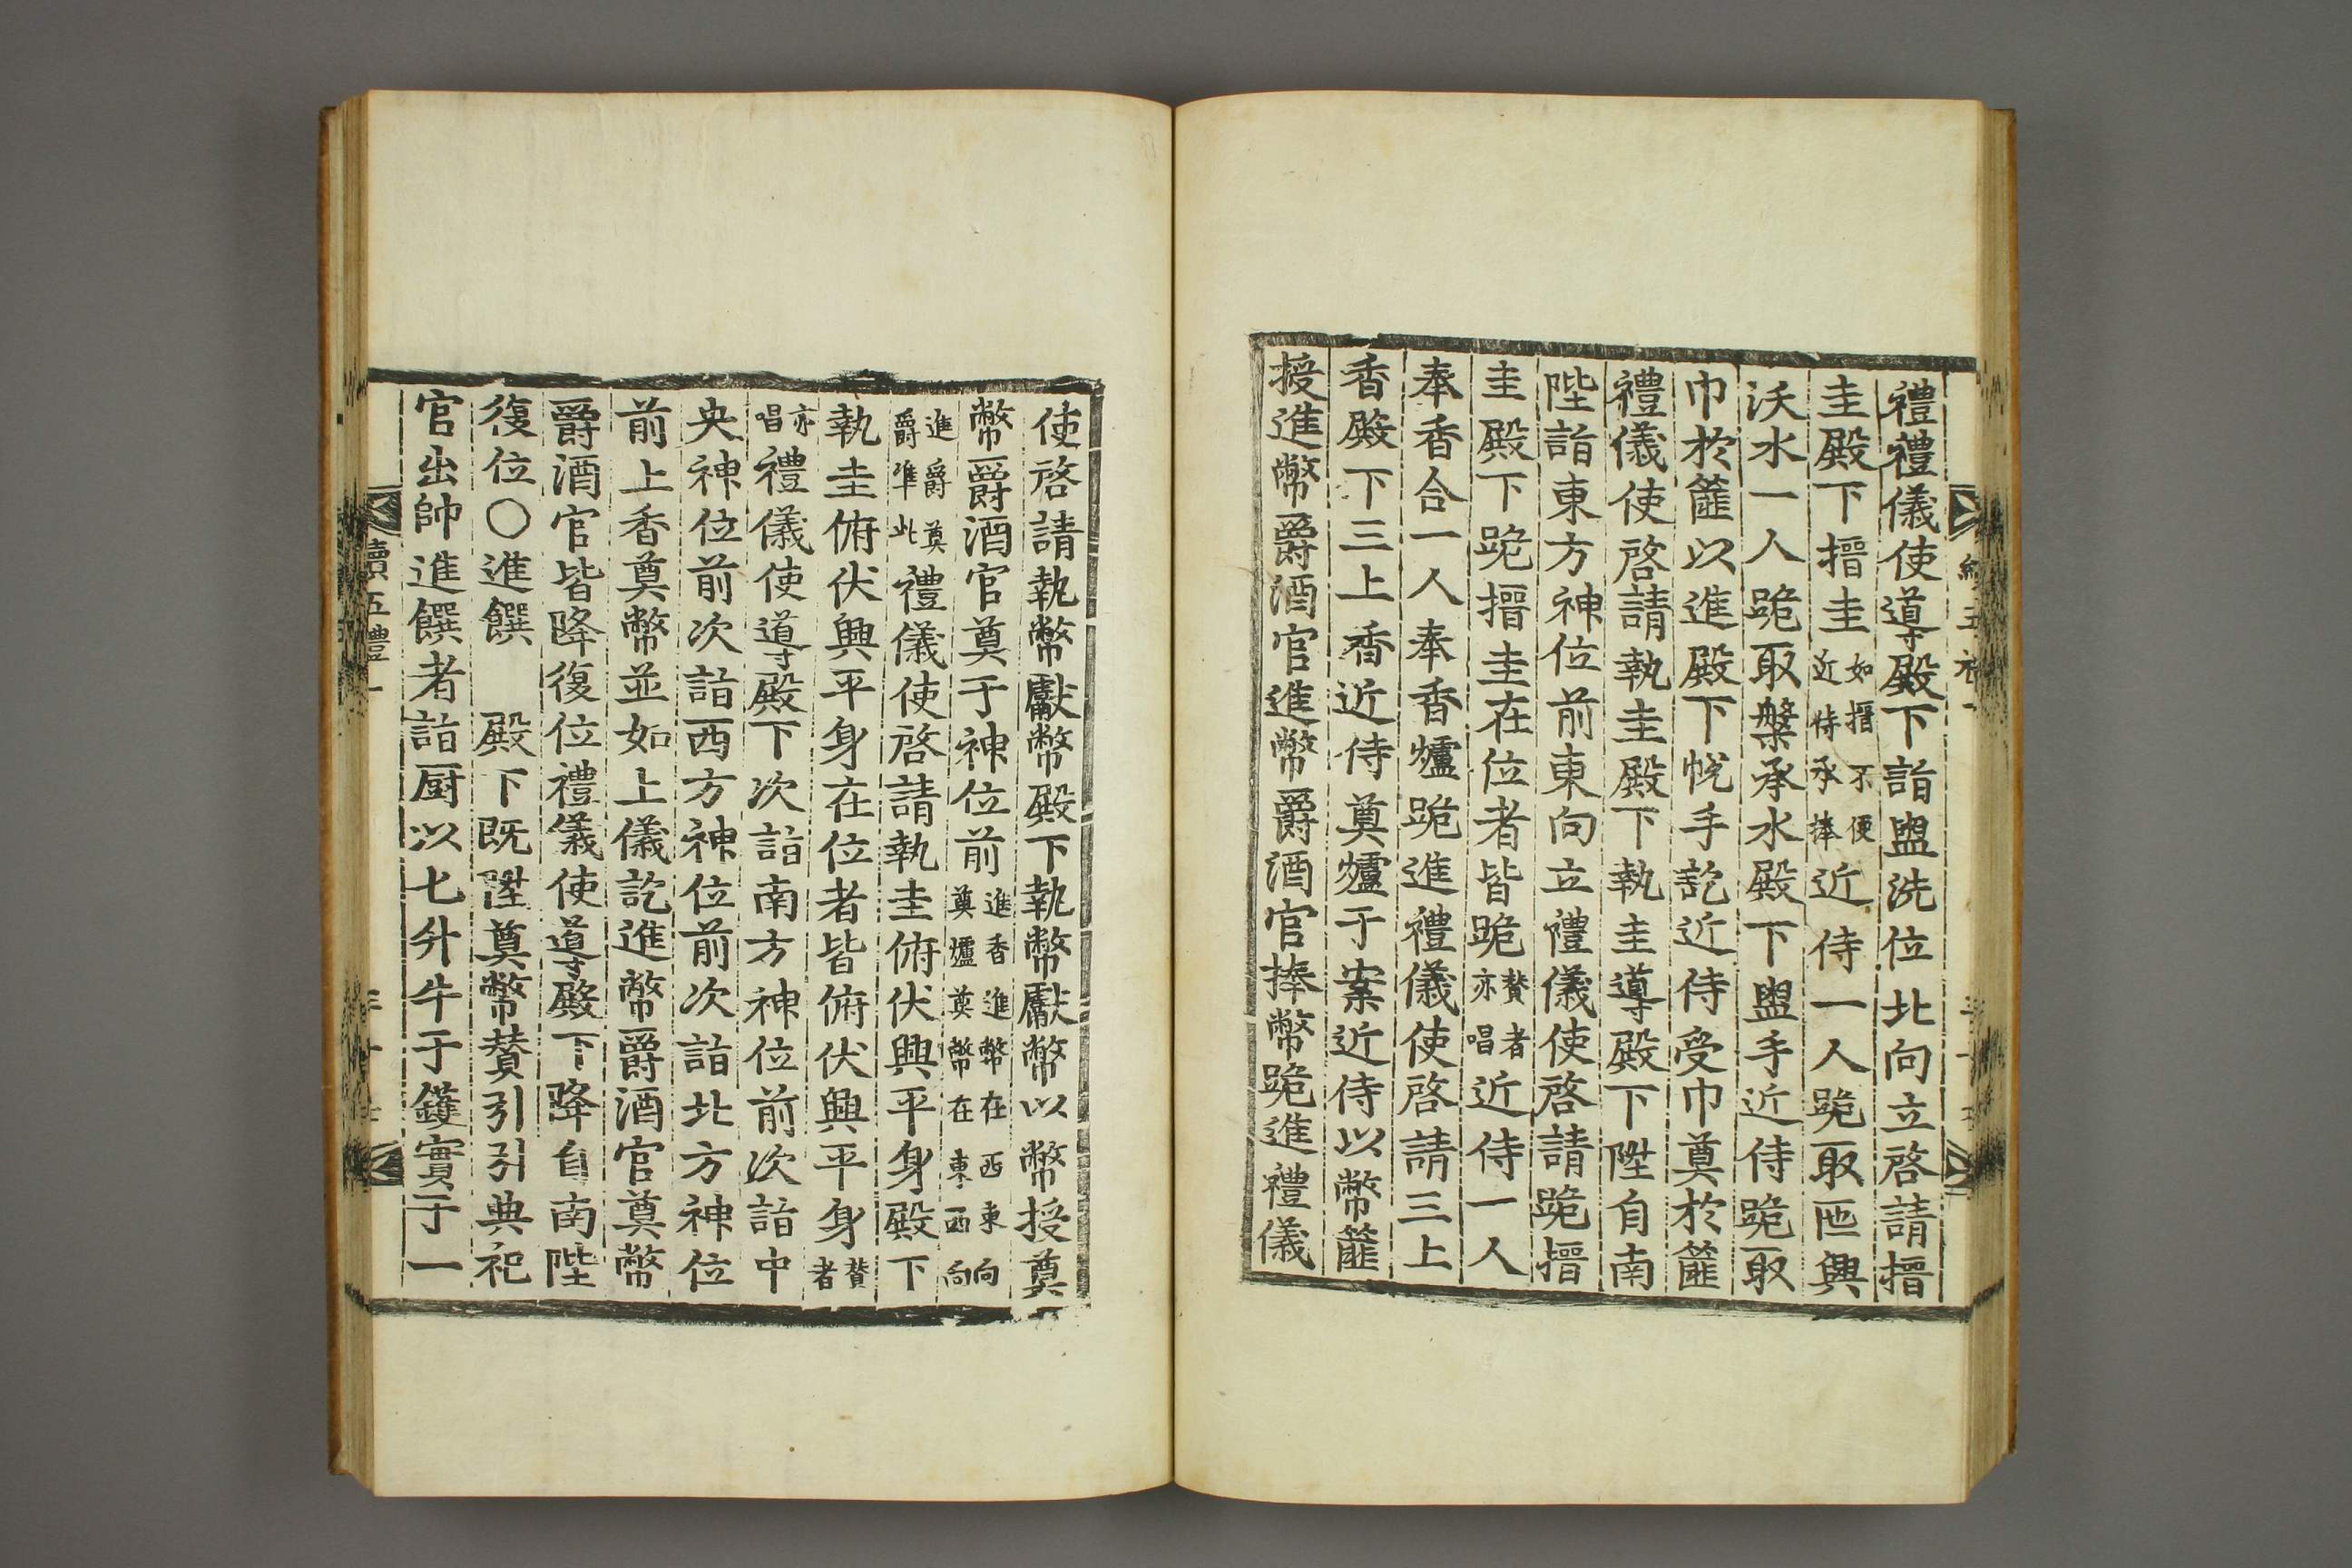 禮禮儀使導殿下詣盥洗位北向立啓請搢
圭殿下搢圭如搢不便近侍承捧近侍一人跪取匜興
沃水一人跪取槃承水殿下盥手近侍跪取
巾於篚以進殿下帨手訖近侍受巾奠於篚
禮儀使啓請執圭殿下執圭導殿下陞自南
陛詣東方神位前東向立禮儀使啓請跪搢
圭殿下跪搢圭在位者皆跪贊者亦唱近侍一人
奉香合一人奉香爐跪進禮儀使啓請三上
香殿下三上香近侍奠爐于案近侍以幣篚
授進幣爵酒官進幣爵酒官捧幣跪進禮儀
使啓請執幣獻幣殿下執幣獻幣以幣授奠
幣爵酒官奠于神位前進香進幣在西東向奠爐奠幣在東西向
進爵奠爵準此禮儀使啓請執圭俯伏興平身殿下
執圭俯伏興平身在位者皆俯伏興平身贊者
亦唱禮儀使導殿下次詣南方神位前次詣中
央神位前次詣西方神位前次詣北方神位
前上香奠幣並如上儀訖進幣爵酒官奠幣
爵酒官皆降復位禮儀使導殿下降自南陛
復位○進饌 殿下既陞奠幣贊引引典祀
官出帥進饌者詣厨以匕升牛于鑊實于一
續五禮一